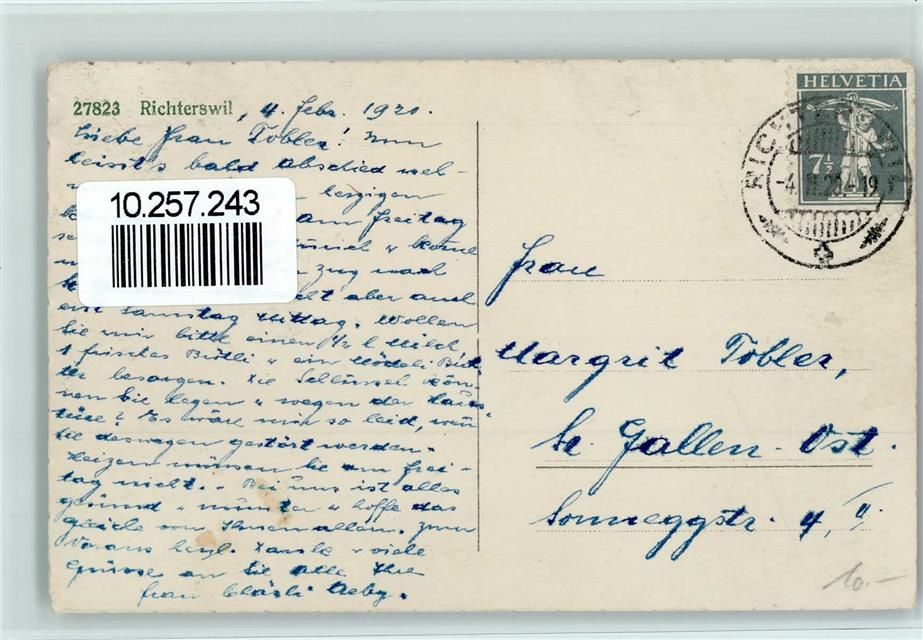 27823 Richterswil, 4. Febr. 1921.
Liebe Frau Tobler! Nun
heisst's bald Abschied neh-
herzigen
am Freitag
u komme
zug nach
aber auch
erst Samstag Mittag. Wollen
Sie mir bitte einen 1/2 l Milch
1 frisches Bütli u ein Mödeli But
ter besorgen. Die Schlüssel kön-
nen Sie legen u wegen der Haus-
türe? Es wäre mir so leid, wenn
Sie deswegen gestört werden.
Heizen müssen Sie am Frei-
tag nicht. - Bei uns ist alles
gesund u munter u hoffe das
gleiche von Ihnen allen. Zum
Voraus herzl. Danke u viele
Grüsse an Sie alle Ihre
Frau Kläsli Aeby.
10.257.243
HELVETIA
7½
RICHTERSWIL
Frau
Margrit Tobler,
St. Gallen-Ost.
Sonneggstr. 4, II.
10.-